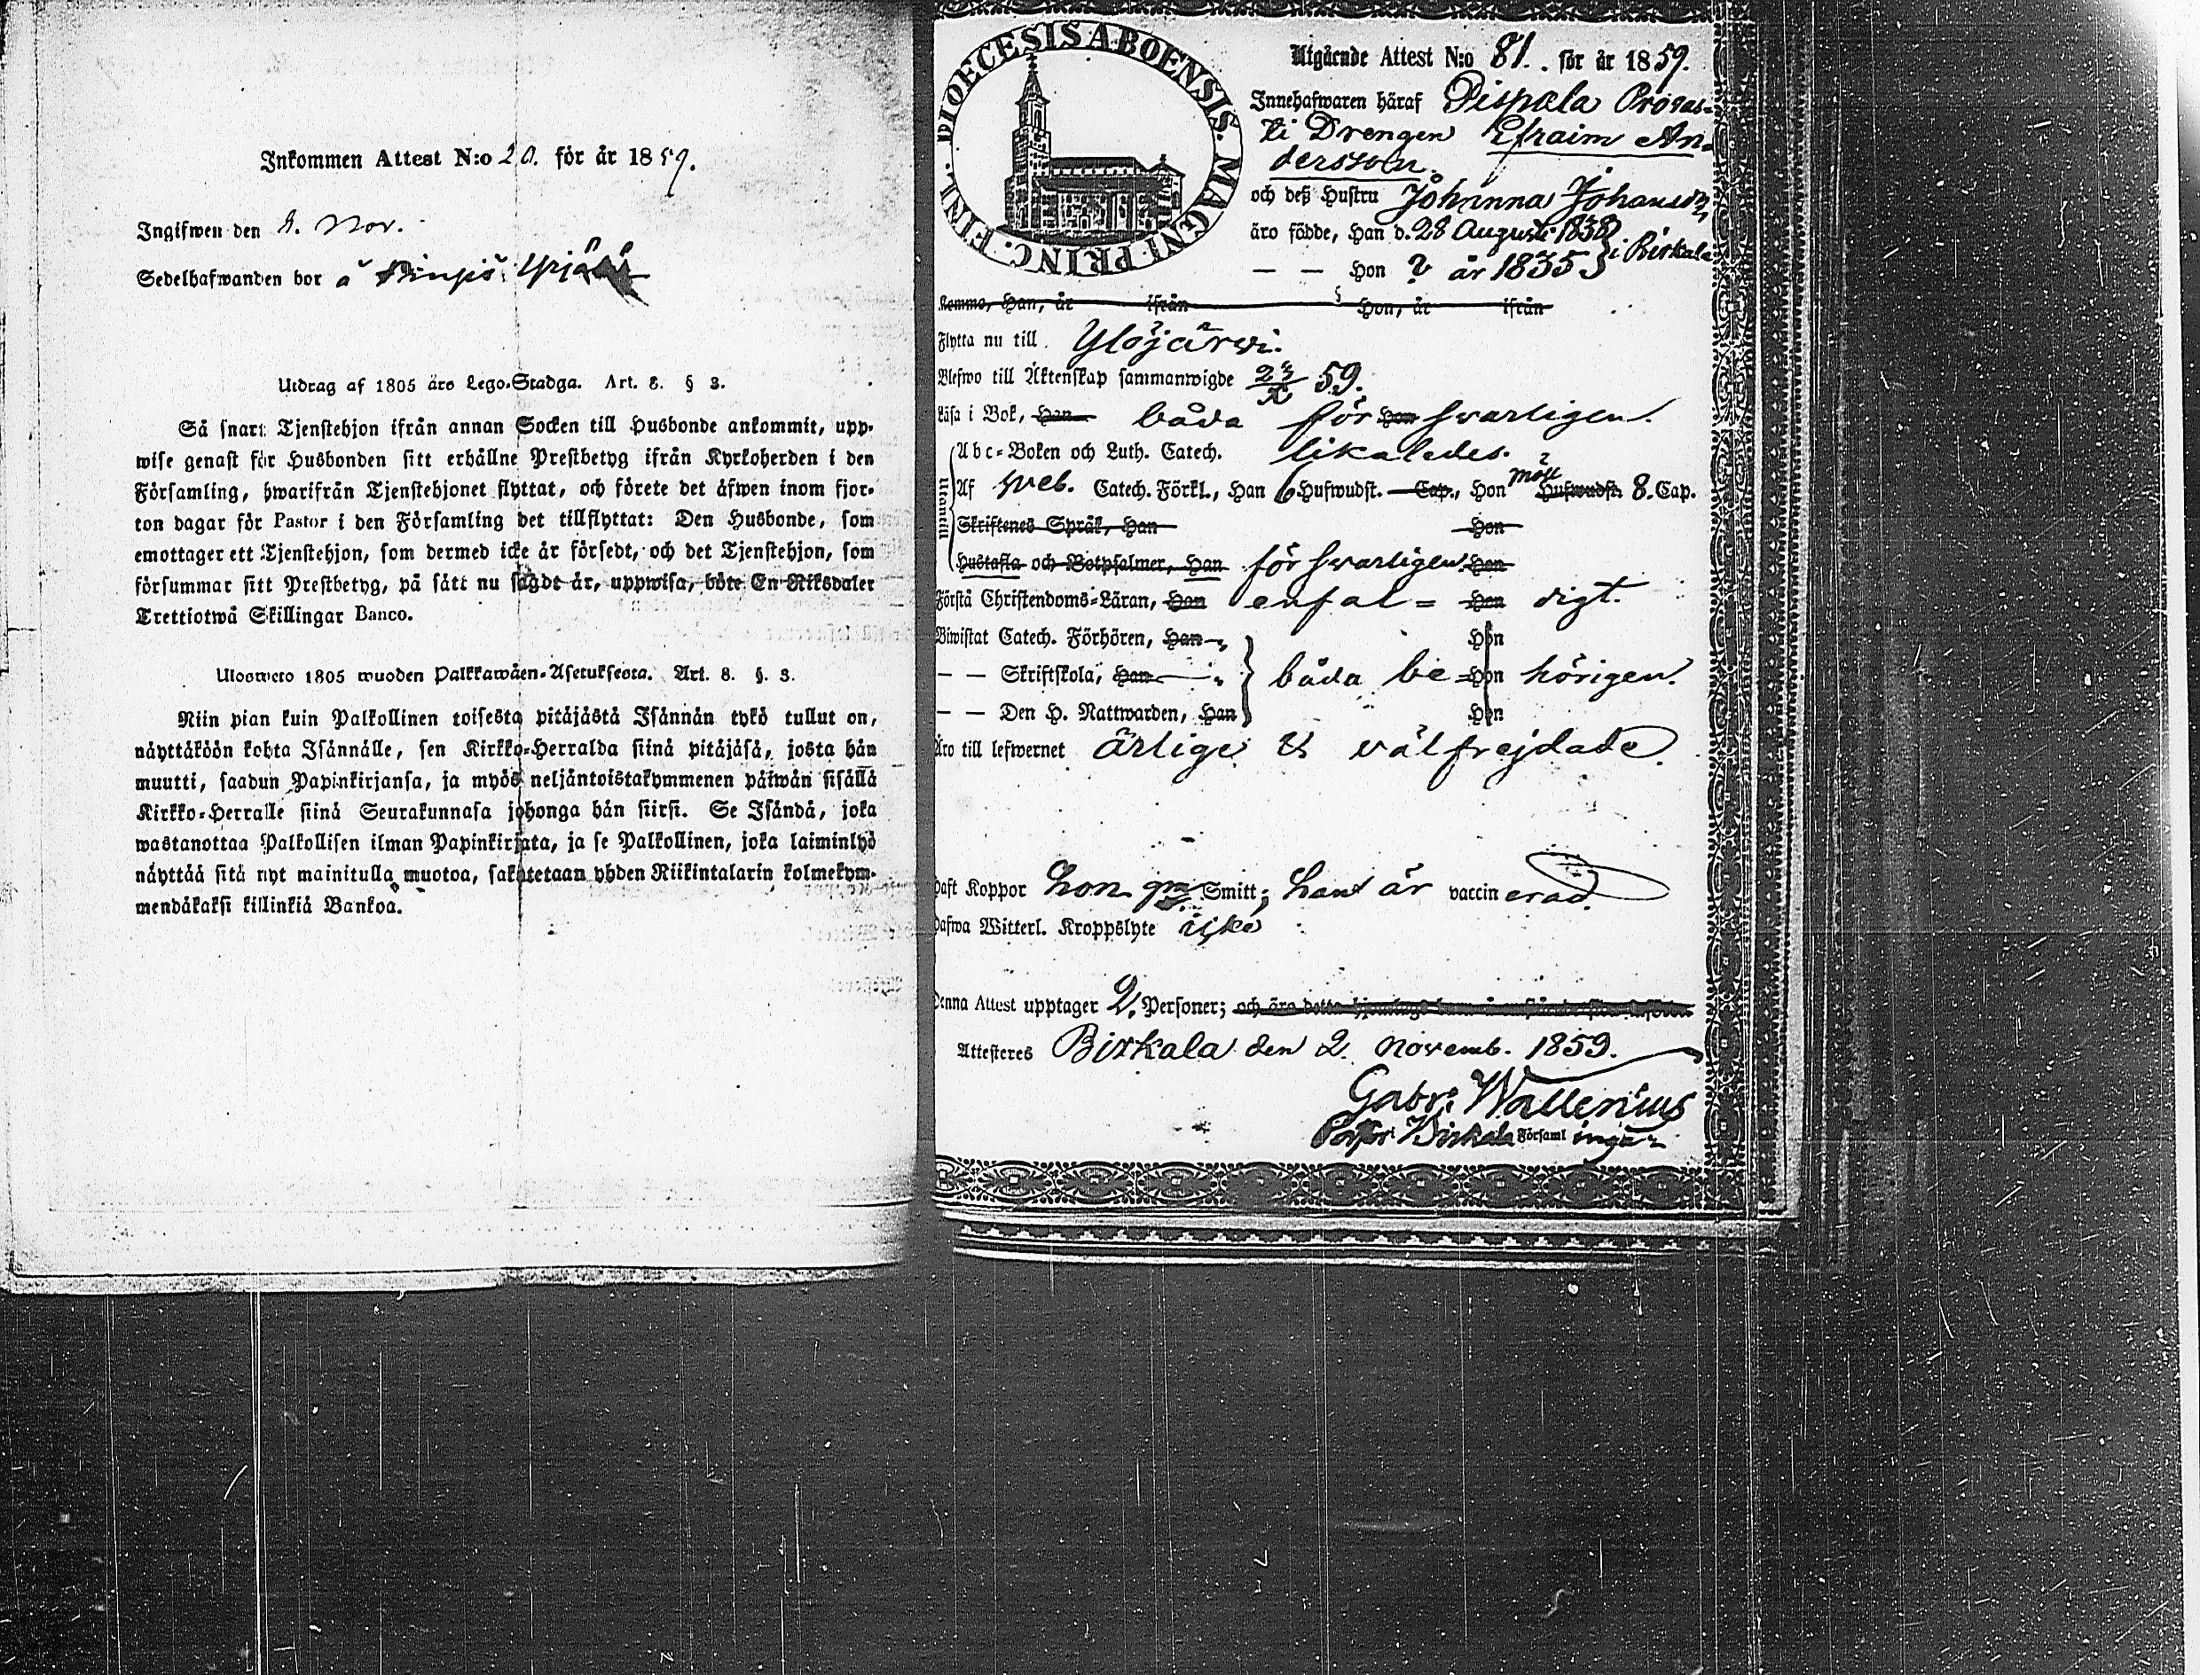 Inkommen Attest N:o 20. för år 1859.
Ingifwen den 8. Nov.
Sedelhafwanden bor å
Utdrag af 1805 års Lego-Stadga. Art. 8. § 3.
Så snart Tjenstehjon ifrån annan Socken till Husbonde ankommit, upp-
wise genast för Husbonden sitt erhållne Prestbetyg ifrån Kyrkoherden i den
Församling, hwarifrån Tjenstehjonet flyttat, och förete det äfwen inom fjor-
ton dagar för Pastor i den Församling det tillflyttat: Den Husbonde, som
emottager ett Tjenstehjon, som dermed icke är försedt, och det Tjenstehjon, som
försummar sitt Prestbetyg, på sätt nu sagdt är, uppwisa, böte En Riksdaler
Trettiotwå Skillingar Banco.
Ulosweto 1805 wuoden Palkkawäen-Asetuksesta. Art. 8. §. 3.
Niin pian kuin Palkollinen toisesta pitäjästä Isännän tykö tullut on,
näyttäköön kohta Isännälle, sen Kirkko-Herralda siinä pitäjäsä, josta hän
muutti, saadun Papinkirjansa, ja myös neljäntoistakymmenen päiwän sisällä
Kirkko-Herralle siinä Seurakunnasa johonga hän siirsi. Se Isändä, joka
wastanottaa Palkollisen ilman Papinkirjata, ja se Palkollinen, joka laiminlyö
näyttää sitä nyt mainitulla muotoa, sakotetaan yhden Riikintalarin kolmekym-
mendäkaksi killinkiä Bankoa.
DIOECESIS ABOENSIS. MAGNI PRINC. FINL.
Utgående Attest N:o 81. för år 1859.
Innehafwaren häraf Pispala Provas-
ti Drengen Efraim An-
dersson
och deß Hustru Johanna Johansdr
äro födde, Han d. 28 Augusti 1838 } i Birkala
— — Hon ? år 1835
Komme, Han, år ifrån Hon, år ifrån
Flytta nu till Ylöjärwi.
Blefwo till Äktenskap sammanwigde 23/X 59.
Läsa i Bok, Han båda för Hon swarligen.
Abc-Boken och Luth. Catech. likaledes.
Utantill
Af Sveb. Catech. Förkl., Han 6 Hufwudst. Cap., Hon Hufwudst. 8. Cap.
Skriftenes Språk, Han Hon
Hustafla och Botpsalmer, Han försvarligen Hon
Förstå Christendoms-Läran, Han enfal- Hon digt.
Biwistat Catech. Förhören, Han Hon
— — Skriftskola, Han båda be- Hon hörigen.
— — Den H. Nattwarden, Han Hon
Äro till lefwernet ärlige & välfrejdade
Haft Koppor hon gm Smitt; han är vaccinerad.
Hafwa Witterl. Kroppslyte icke
Denna Attest upptager 2. Personer;
Attesteres Birkala den 2 Novemb. 1859.
Gabr. Wallenius
Pastor i Birkala Församlingar